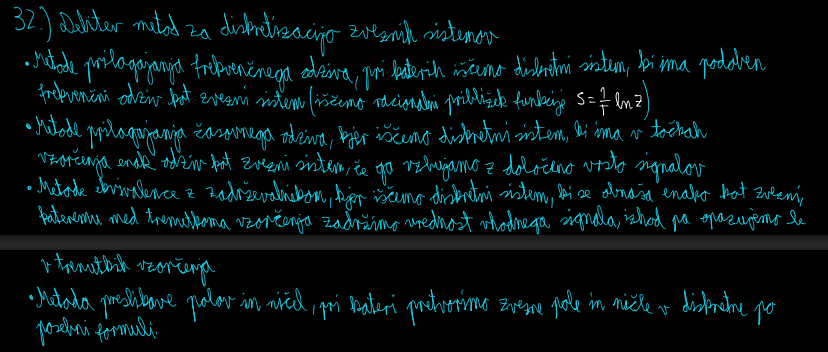 32.) Delitev metod za diskretizacijo zveznih sistemov
• Metode prilagajanja frekvenčnega odziva, pri katerih iščemo diskretni sistem, ki ima podoben
frekvenčni odziv kot zvezni sistem (iščemo racionalni približek funkcije s = 1/T ln z)
• Metode prilagajanja časovnega odziva, kjer iščemo diskretni sistem, ki ima v točkah
vzorčenja enak odziv kot zvezni sistem, če ga vzbujamo z določeno vrsto signalov
• Metode ekvivalence z zadrževalnikom, kjer iščemo diskretni sistem, ki se obnaša enako kot zvezni,
kateremu med trenutkoma vzorčenja zadržimo vrednost vhodnega signala, izhod pa opazujemo le
v trenutkih vzorčenja
• Metoda preslikave polov in ničel, pri kateri pretvorimo zvezne pole in ničle v diskretne po
posebni formuli.